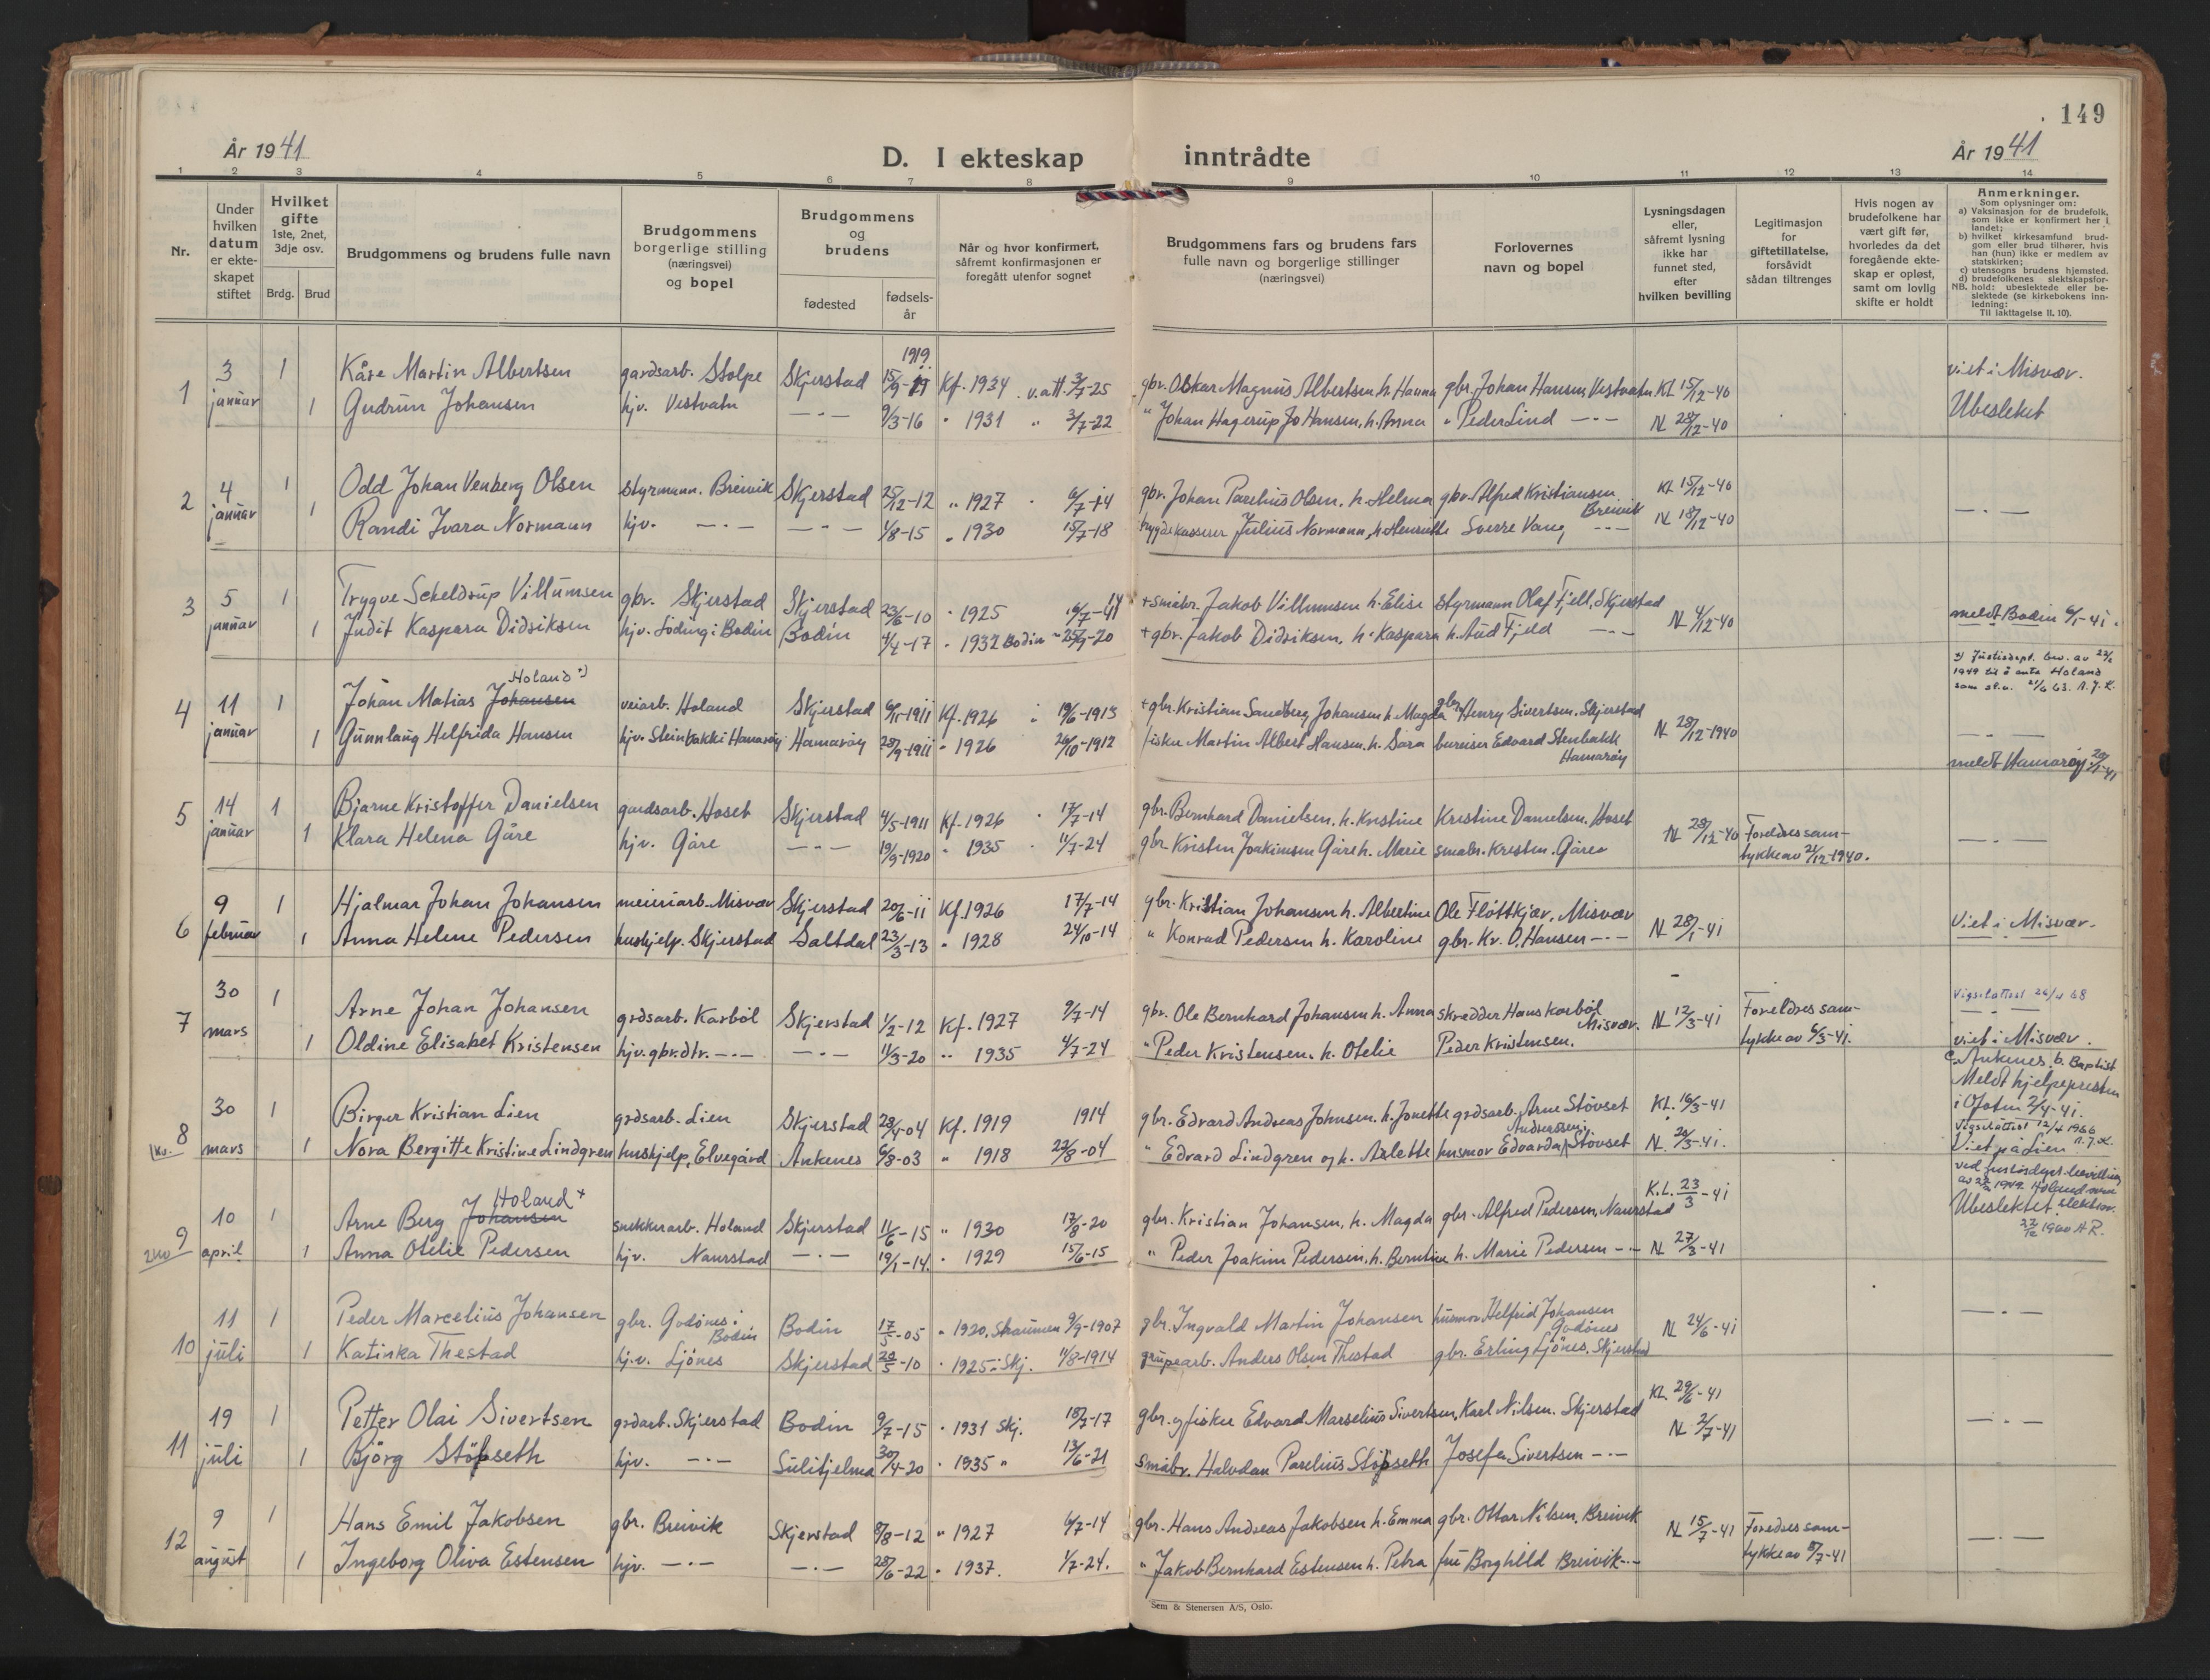 149
År 1941
D. I ekteskap inntrådte
År 1941
1 2 3 4 5 6 7 8 9 10 11 12 13 14
Nr.
Under hvilken datum er ekteskapet stiftet
Hvilket gifte 1ste, 2net, 3dje osv.
Brdg. Brud
Brudgommens og brudens fulle navn
Brudgommens borgerlige stilling (næringsvei) og bopel
Brudgommens og brudens
fødested
fødselsår
Når og hvor konfirmert, såfremt konfirmasjonen er foregått utenfor sognet
Brudgommens fars og brudens fars fulle navn og borgerlige stillinger (næringsvei)
Forlovernes navn og bopel
Lysningsdagen eller, såfremt lysning ikke har funnet sted, efter hvilken bevilling
Legitimasjon for giftetillatelse, forsåvidt sådan tiltrenges
Hvis nogen av brudefolkene har vært gift før, hvorledes da det foregående ekteskap er opløst, samt om lovlig skifte er holdt
Anmerkninger.
Som oplysninger om:
a) Vaksinasjon for de brudefolk, som ikke er konfirmert her i landet;
b) hvilket kirkesamfund brudgom eller brud tilhører, hvis han (hun) ikke er medlem av statskirken;
c) utensogns brudens hjemsted.
d) brudefolkenes slektskapsforhold: ubeslektede eller beslektede (se kirkebokens innledning:
NB.
Til iakttagelse II. 10).
1 3 januar 1 Kåre Martin Albertsen gardsarb. Stolpe Skjerstad 1919 15/9- Kf. 1934 v.att 3/7-25 gbr. Oskar Magnus Albertsen h. Hanna gbr. Johan Hansen Vestvatn KL 15/12-40 viet i Misvær.
1 Gudrun Johansen hjv. Vestvatn —·— 9/3-16 " 1931 " 3/7-22 " Johan Hagerup Johansen, h. Anna " Peder Lind —·— N 28/12-40 Ubeslektet
2 4 januar 1 Odd Johan Venberg Olsen styrmann. Breivik Skjerstad 25/12-12 " 1927 6/7-14 gbr. Johan Parelius Olsen, h. Helma gbr. Alfred Kristiansen Breivik KL 15/12-40
1 Randi Ivara Normann hjv. —·— —·— 1/8-15 " 1930 15/7-18 trygdekasserer Julius Normann, h. Henriette Sverre Vang —·— N 18/12-40 —·—
3 5 januar 1 Trygve Scheldrup Villumsen gbr. Skjerstad Skjerstad 23/6-10 " 1925 16/7- 14 + småbr. Jakob Villumsen h. Elise styrmann Olaf Fjell, Skjerstad N 4/12-40 meldt Bodin 6/1-41.
1 Judit Kaspara Didriksen hjv. Löding i Bodin Bodin 4/4-17 " 1932 Bodin " 25/9-20 + gbr. Jakob Didriksen, h. Kaspara h. Aud Fjeld —·—
4 11 januar 1 Johan Matias Johansen Holand +) veiarb. Holand Skjerstad 6/11-1911 Kf. 1926 19/6-1913 + gbr. Kristian Sandberg Johansen h. Magda gbr. Henry Sivertsen. Skjerstad N 28/12-1940
+) Justisdept. bev. av 22/2 1949 til å anta Holand som sl.n. 21/6 63. A.J.K.
1 Gunnlaug Helfrida Hansen hjv. Steinbakki Hamarøy Hamarøy 28/9-1911 " 1926 26/10-1912 fisker Martin Albert Hansen. h. Sara bureiser Edvard Stenbakk Hamarøy —·—
meldt Hamarøy 20/1-41
5 14 januar 1 Bjarne Kristoffer Danielsen gardsarb. Hoset Skjerstad 4/5-1911 Kf. 1926 17/7-14 gbr. Bernhard Danielsen. h. Kristine Kristine Danielsen. Hoset N 28/12-40 Foreldres samtykke av 21/12-1940. —·—
1 Klara Helena Gåre hjv. Gåre —·— 19/9-1920 " 1935 11/7-24 gbr. Kristen Joakimsen Gåre h. Marie småbr. Kristen. Gåre
6 9 februar 1 Hjalmar Johan Johansen meieriarb. Misvær Skjerstad 20/6-11 Kf. 1926 17/7-14 gbr. Kristian Johansen h. Albertine Ole Flöttkjær, Misvær N 28/1-41 Viet i Misvær.
1 Anna Helene Pedersen hushjelp. Skjerstad Saltdal 23/3-13 " 1928 24/10-14 " Konrad Pedersen h. Karoline gbr. Kr. O. Hansen —·—
7 30 mars 1 Arne Johan Johansen grdsarb. Karböl Skjerstad 1/2-12 Kf. 1927 9/7-14 gbr. Ole Bernhard Johansen h. Anna skredder Hans Karböl Misvær. N 12/3-41 Foreldres samtykke av 6/3-41. Vigselattest 26/4 68
1 Oldine Elisabet Kristensen hjv. gbr.dtr. —·— —·— 11/3-20 " 1935 4/7-24 " Peder Kristensen. h. Otelie Peder Kristensen. viet i Misvær.
8 30 mars 1 Birger Kristian Lien grdsarb. Lien Skjerstad 28/4-04 Kf. 1919 1914 gbr. Edvard Andreas Johnsen. h. Jonette grdsarb. Arne Stövset KL. 16/3-41
1 Nora Bergitte Kristine Lindgren hushjelp, Elvegård Ankenes 6/8-03 " 1918 22/8-04 " Edvard Lindgren og h. Arlette husmor Edvarda Andersen, Stövset N. 20/3-41.
c. Ankenes. b. Baptist Meldt hjelpepresten i Ofoten 2/4-41. Vigselattest 12/4 1966 A.J.K. Viet på Lien
9 10 april 1 Arne Berg Johansen Holand + snekkerarb. Holand Skjerstad 11/6-15 " 1930 17/8-20 gbr. Kristian Johansen, h. Magda gbr. Alfred Pedersen, Naurstad K.L. 23/3-41
1 Anna Otelie Pedersen hjv. Naurstad —·— 19/1-14. " 1929 15/6-15 " Peder Joakim Pedersen. h. Berntine h. Marie Pedersen —·— N 27/3-41
Ubeslektet.
10 11 juli 1 Peder Marcelius Johansen gbr. Godönes i Bodin Bodin 17/5-05 " 1920, Straumen 9/9-1907 gbr. Ingvald Martin Johansen husmor Helfrid Johansen Godönes N 24/6-41 —·—
1 Katinka Thestad hj.v. Ljönes Skjerstad 20/5-10 " 1925 i Skj. 11/8-1914 grupearb. Anders Olsen Thestad gbr. Erling Ljönes, Skjerstad
11 19 juli 1 Petter Olai Sivertsen grdarb. Skjerstad Bodin 9/7-15 " 1931 Skj. 18/7-17 gbr. og fisker Edvard Marselius Sivertsen, Karl Nilsen. Skjerstad KL 29/6-41 N 2/7-41 —·—
1 Björg Stöpseth hjv. —·— Sulitjelma 30/4-20 " 1935 " 13/6-21 småbr. Halvdan Parelius Stöpseth Josefa Sivertsen —·—
12 9 august 1 Hans Emil Jakobsen gbr. Breivik Skjerstad 8/8-12 " 1927 6/7-14 gbr. Hans Andreas Jakobsen h. Emma gbr. Ottar Nilsen, Breivik N 15/7-41 Foreldres samtykke av 8/7-41 —·—
1 Ingeborg Oliva Estensen hjv. —·— —·— 28/6-22 " 1937. 1/7-24. " Jakob Bernhard Estensen h. Petra fru Borghild Breivik —·—
Sem & Stenersen A/S, Oslo.